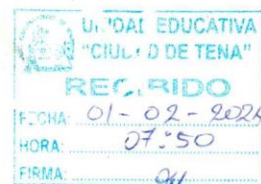 UNIDAD EDUCATIVA
"CIUDAD DE TENA"
RECIBIDO
FECHA: 01-02-2024
HORA: 07:50
FIRMA: